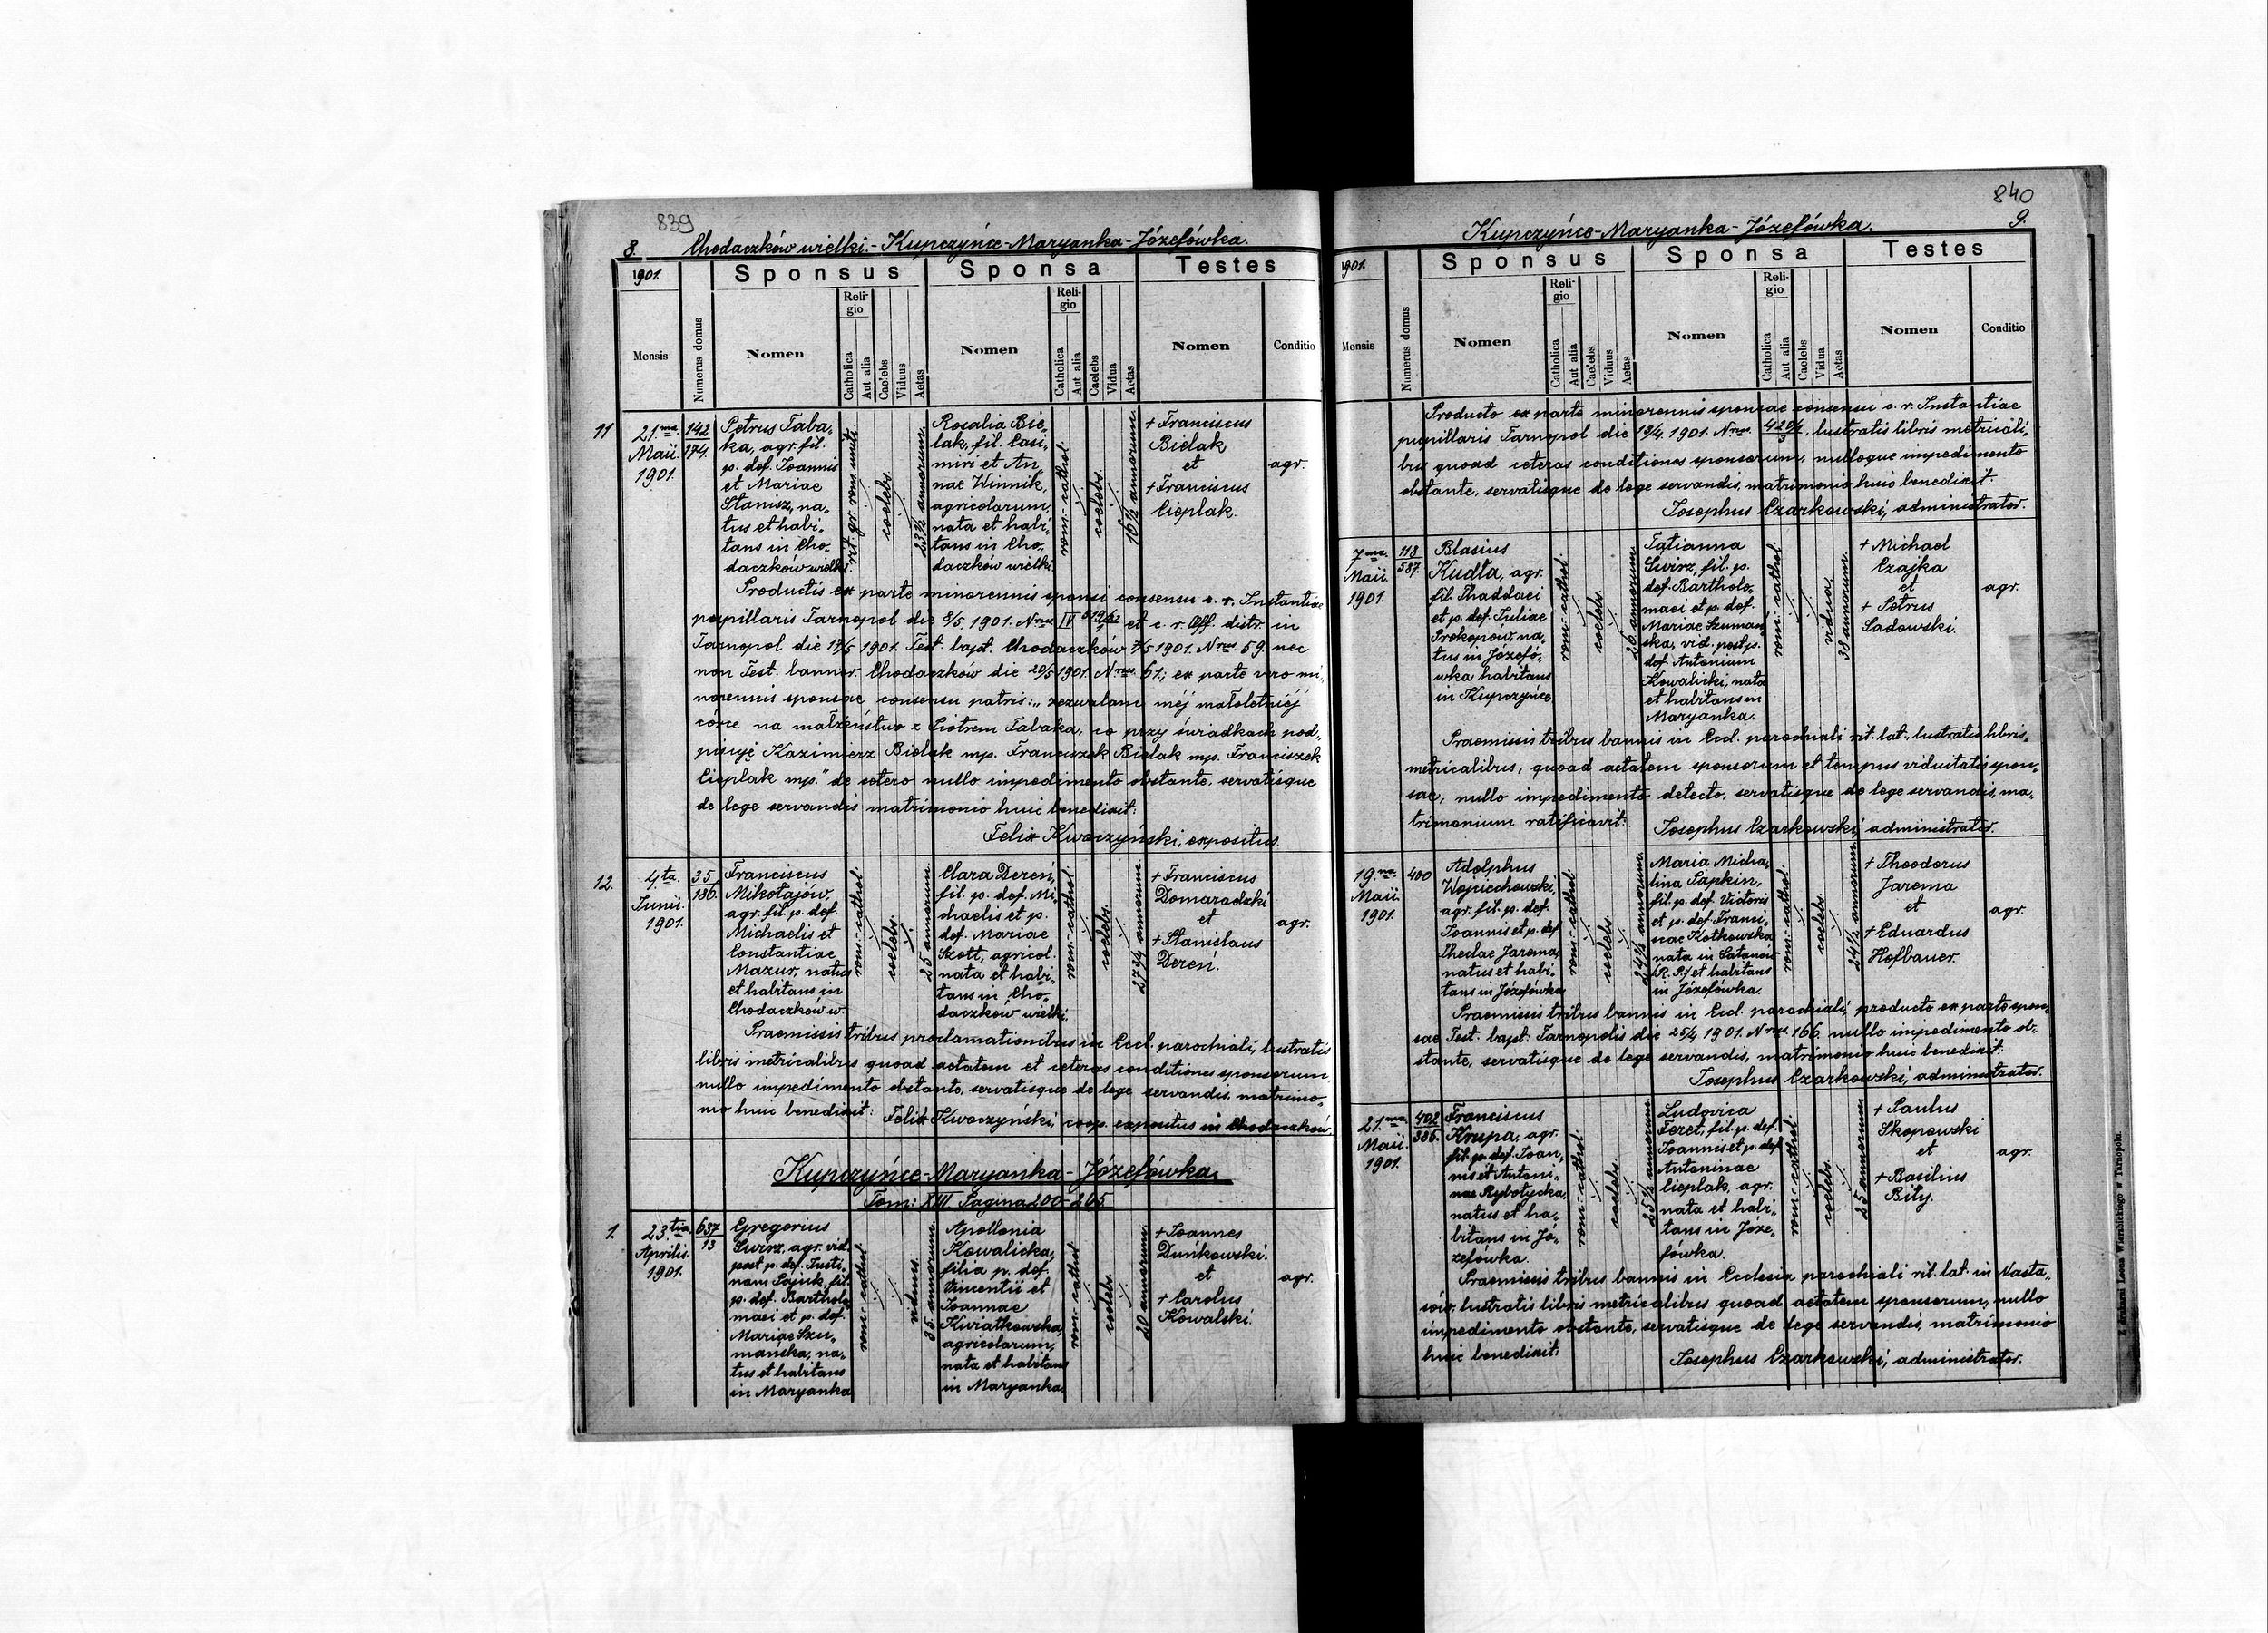 839
8. Chodaczków wielki.- Kupczyńce-Maryanka-Józefówka.
1901.
Sponsus
Sponsa
Testes
Mensis
Numerus domus
Nomen
Religio
Catholica
Aut alia
Caelebs
Viduus
Aetas
Nomen
Religio
Catholica
Aut alia
Caelebs
Vidua
Aetas
Nomen
Conditio
11
21.ma
Maii.
1901.
142
174.
Petrus Taba„
ka, agr. fil.
p. def. Joannis
et Mariae
Stanisz, na„
tus et habi„
tans in Cho„
daczków wielki.
rit. gr. rom. unit.
coelebs.
23½ annorum.
Rosalia Bie„
lak, fil. Casi„
miri et An„
nae Winnik,
agricolarum,
nata et habi„
tans in Cho„
daczków wielki
rom.-cathol.
coelebs.
16½ annorum.
+ Franciscus
Bielak
et
+ Franciscus
Cieplak.
agr.
Productis ex parte minorennis sponsi consensu c. r. Instantiae
pupillaris Tarnopol die 8/5. 1901. Nrus IV et c. r. Off. distr. in
Tarnopol die 17/5 1901. Test. bapt. Chodaczków 7/5 1901. Nrus. 59. nec
non Test. bannor. Chodaczków die 20/5 1901. Nrus. 61.; ex parte vero mi„
norennis sponsae consensu patris: „zezwalam méj małoletniéj
córce na małżeństwo z Piotrem Tabaka, co przy świadkach pod„
pisuję Kazimierz Bielak mp. Franciszek Bielak mp. Franciszek
Cieplak mp." de cetero nullo impedimento obstante, servatisque
de lege servandis matrimonio huic benedixit:
Felix Kwoczyński, expositus.
12.
4.ta
Junii.
1901.
35.
186.
Franciscus
Mikołajów,
agr. fil. p. def.
Michaelis et
Constantiae
Mazur, natus
et habitans in
Chodaczków w.
rom.-cathol.
coelebs.
25 annorum.
Clara Dereń,
fil. p. def. Mi„
chaelis et p.
def. Mariae
Szott, agricol.
nata et habi„
tans in Cho„
daczków wielki.
rom.-cathol.
coelebs.
27¾ annorum.
+ Franciscus
Domaradzki
et
+ Stanislaus
Dereń.
agr.
Praemissis tribus proclamationibus in Eccl. parochiali, lustratis
libris metricalibus quoad aetatem et ceteras conditiones sponsorum,
nullo impedimento obstante, servatisque de lege servandis, matrimo„
nio huic benedixit: Felix Kwoczyński, coop. expositus in Chodaczków.
Kupczyńce-Maryanka-Józefówka.
Tom: XIII Pagina 200-265.
1.
23.tia
Aprilis.
1901.
637
13
Gregorius
Świrz, agr. vid.
post p. def. Justi„
nam Pajuk, fil.
p. def. Bartholo
maei et p. def.
Mariae Szu„
mańska, na„
tus et habitans
in Maryanka
rom.-cathol.
viduus.
35. annorum.
Apollonia
Kowalicka,
filia p. def.
Vincentii et
Joannae
Kwiatkowska,
agricolarum,
nata et habitans
in Maryanka.
rom.-cathol.
coelebs.
20 annorum.
+ Joannes
Duńkowski.
et
+ Carolus
Kowalski.
agr.
840
Kupczyńce-Maryanka-Józefówka.
9.
1901.
Sponsus
Sponsa
Testes
Mensis
Numerus domus
Nomen
Religio
Catholica
Aut alia
Caelebs
Viduus
Aetas
Nomen
Religio
Catholica
Aut alia
Caelebs
Vidua
Aetas
Nomen
Conditio
Producto ex parte minorennis sponsae consensu c. r. Instantiae
pupillaris Tarnopol die 13/4. 1901. Nrus. lustratis libris metricali„
bus quoad ceteras conditiones sponsorum, nulloque impedimento
obstante, servatisque de lege servandis, matrimonio huic benedixit:
Josephus Czarkowski, administrator.
7ma.
Maii.
1901.
118
587.
Blasius
Kudła, agr.
fil. Thaddaei
et p. def. Juliae
Prokopów, na„
tus in Józefó„
wka habitans
in Kupczyńce
rom.-cathol.
coelebs.
26 annorum.
Tatianna
Świrz, fil. p.
def. Bartholo„
maei et p. def.
Mariae Szumań„
ska, vid. post p.
def. Antonium
Kowalicki, nata
et habitans in
Maryanka.
rom.-cathol.
vidua.
38 annorum.
+ Michael
Czajka
et
+ Petrus
Sadowski.
agr.
Praemissis tribus bannis in Eccl. parochiali rit. lat., lustratis libris„
metricalibus, quoad aetatem sponsorum et tempus viduitatis spon„
sae, nullo impedimento detecto, servatisque de lege servandis, ma„
trimonium ratificavit:
Josephus Czarkowski, administrator.
19.na
Maii.
1901.
400
Adolphus
Wojciechowski,
agr. fil. p. def.
Joannis et p. def.
Theclae Jarema,
natus et habi„
tans in Józefówka
rom.-cathol.
coelebs.
24½ annorum.
Maria Micha„
lina Sapkin,
fil. p. def. Victoris
et p. def. Franci„
scae Kotkowska
nata in Satanów
(R. P.) et habitans
in Józefówka.
rom.-cathol.
coelebs.
24½ annorum.
+ Theodorus
Jarema
et
+ Eduardus
Hofbauer.
agr.
Praemissis tribus bannis in Eccl. parochiali, producto ex parte spon„
sae Test. bapt: Tarnopolis die 25/4 1901. Nrus. 166. nullo impedimento ob„
stante, servatisque de lege servandis, matrimonio huic benedixit:
Josephus Czarkowski, administrator.
21.ma
Maii.
1901.
402
386.
Franciscus
Krupa, agr.
fil. p. def. Joan„
nis et Antoni„
nae Rybotycka,
natus et ha„
bitans in Jó„
zefówka.
rom.-cathol.
coelebs.
25½ annorum
Ludovica
Feret, fil. p. def.
Joannis et p. def.
Antoninae
Cieplak, agr.
nata et habi„
tans in Józe„
fówka.
rom.-cathol.
coelebs.
25 annorum
+ Paulus
Skopowski
et
+ Basilius
Bity.
agr.
Praemissis tribus bannis in Ecclesia parochiali rit. lat. in Nasta„
sów. lustratis libris metricalibus quoad aetatem sponsorum, nullo
impedimento obstante, servatisque de lege servandis, matrimonio
huic benedixit:
Josephus Czarkowski, administrator.
Z drukarni Leona Wierzbickiego w Tarnopolu.